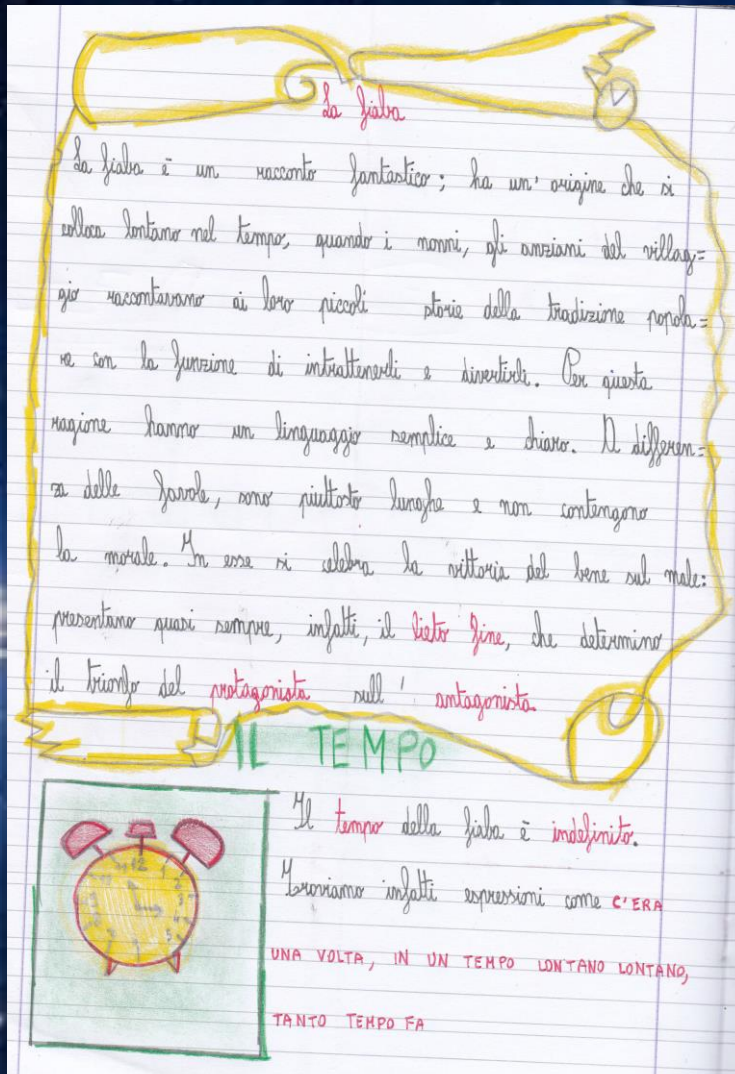 La fiaba
La fiaba è un racconto fantastico; ha un' origine che si
colloca lontano nel tempo, quando i nonni, gli anziani del villag=
gio raccontavano ai loro piccoli storie della tradizione popola=
re con la funzione di intrattenerli e divertirli. Per questa
ragione hanno un linguaggio semplice e chiaro. A differen=
za delle favole, sono piuttosto lunghe e non contengono
la morale. In esse si celebra la vittoria del bene sul male:
presentano quasi sempre, infatti, il lieto fine, che determino
il trionfo del protagonista sull' antagonista
IL TEMPO
Il tempo della fiaba è indefinito.
Troviamo infatti espressioni come C'ERA
UNA VOLTA, IN UN TEMPO LONTANO LONTANO,
TANTO TEMPO FA
12
1
2